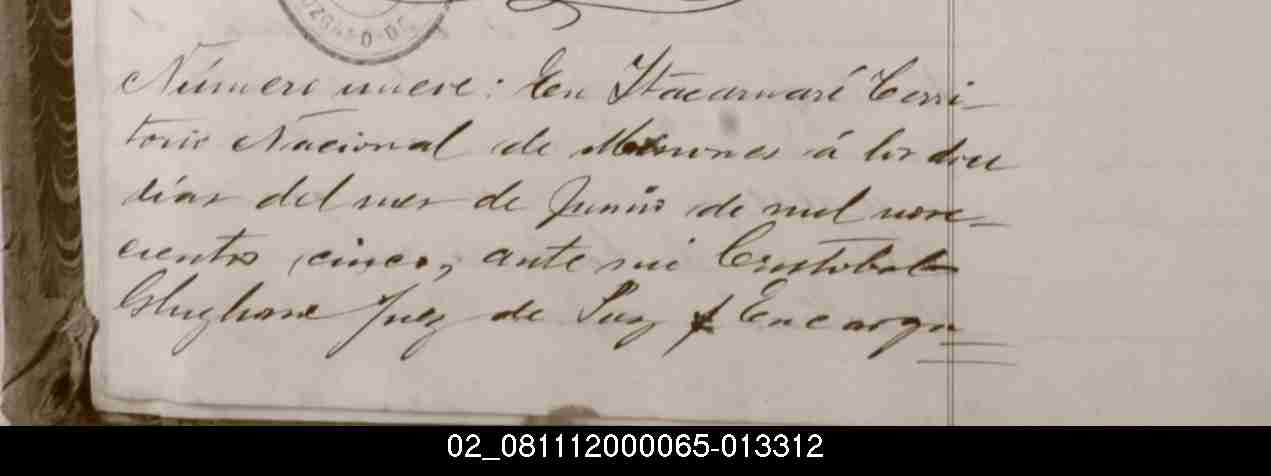 Número nueve: En Itacaruaré Terri-
torio Nacional de Misiones á los doce
días del mes de Junio de mil nove-
cientos cinco, ante mi Cristobal
Juez de Paz y Encarga
02_081112000065-013312